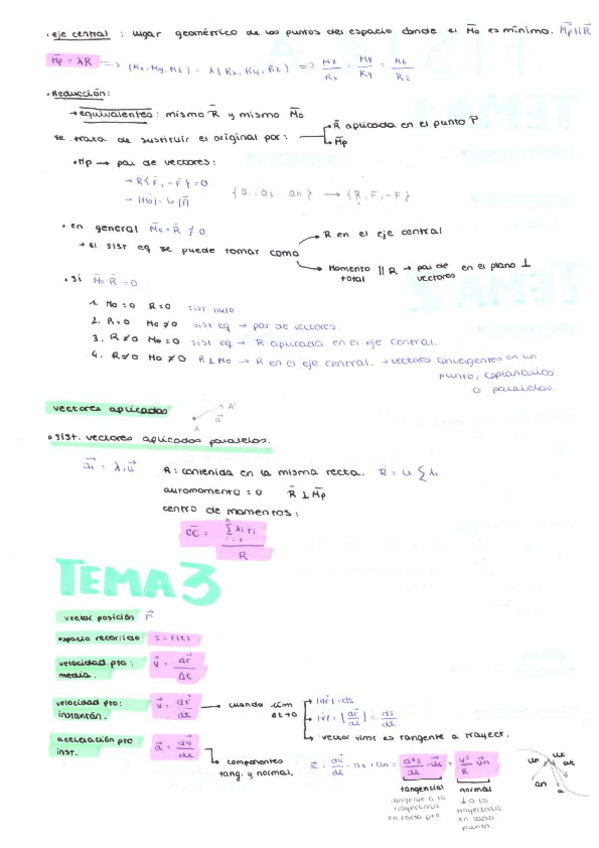 • eje central : lugar geométrico de los puntos del espacio donde el M̄o es mínimo. M̄p ∥ R̄
M̄p = λR̄ ⟹ (Mx, My, Mz) = λ(Rx, Ry, Rz) ⟹ Mx/Rx = My/Ry = Mz/Rz
• Reducción:
→ equivalentes: mismo R̄ y mismo M̄o
se trata de sustituir el original por: → R̄ aplicada en el punto P
→ M̄p
• Mp → par de vectores:
→ R{F̄, -F̄} = 0
{a₁, a₂ an} → {R, F, -F}
• en general M̄o · R̄ ≠ 0
→ el sist eq se puede tomar como → R en el eje central
→ Momento total ∥ R → par de vectores en el plano ⊥
• Si M̄o R̄ = 0
1. Mo = 0 R = 0 sist nulo
2. R = 0 Mo ≠ 0 sist eq → par de vectores.
3. R ≠ 0 Mo = 0 sist eq → R aplicada en el eje central.
4. R ≠ 0 Mo ≠ 0 R ⊥ Mo → R en el eje central. → vectores convergentes en un
punto, coplanarios
o paralelos.
vectores aplicados A A' a⃗
• sist. vectores aplicados paralelos.
a⃗i = λi u⃗ R: contenida en la misma recta. R̄ = u Σ λi
automomento = 0 R̄ ⊥ M̄p
centro de momentos:
O̅C̅ = Σ λi ri / R
TEMA 3
vector posición r⃗
espacio recorrido s = r(t)
velocidad pto: media. v⃗ = Δr⃗/Δt
velocidad pto: instantán. v⃗ = dr⃗/dt → cuando lim Δt→0 → |dr⃗| = ds
→ |v⃗| = |dr⃗/dt| = ds/dt
→ vector vins es tangente a trayect.
aceleración pto inst. a⃗ = dv⃗/dt → componentes tang. y normal. a⃗ = dv⃗/dt = at + an = d²s/dt · u⃗t + v²/R u⃗n
un ut at an a
tangencial normal
tangente a la trayectoria en cada pto
⊥ a la trayectoria en cada punto.